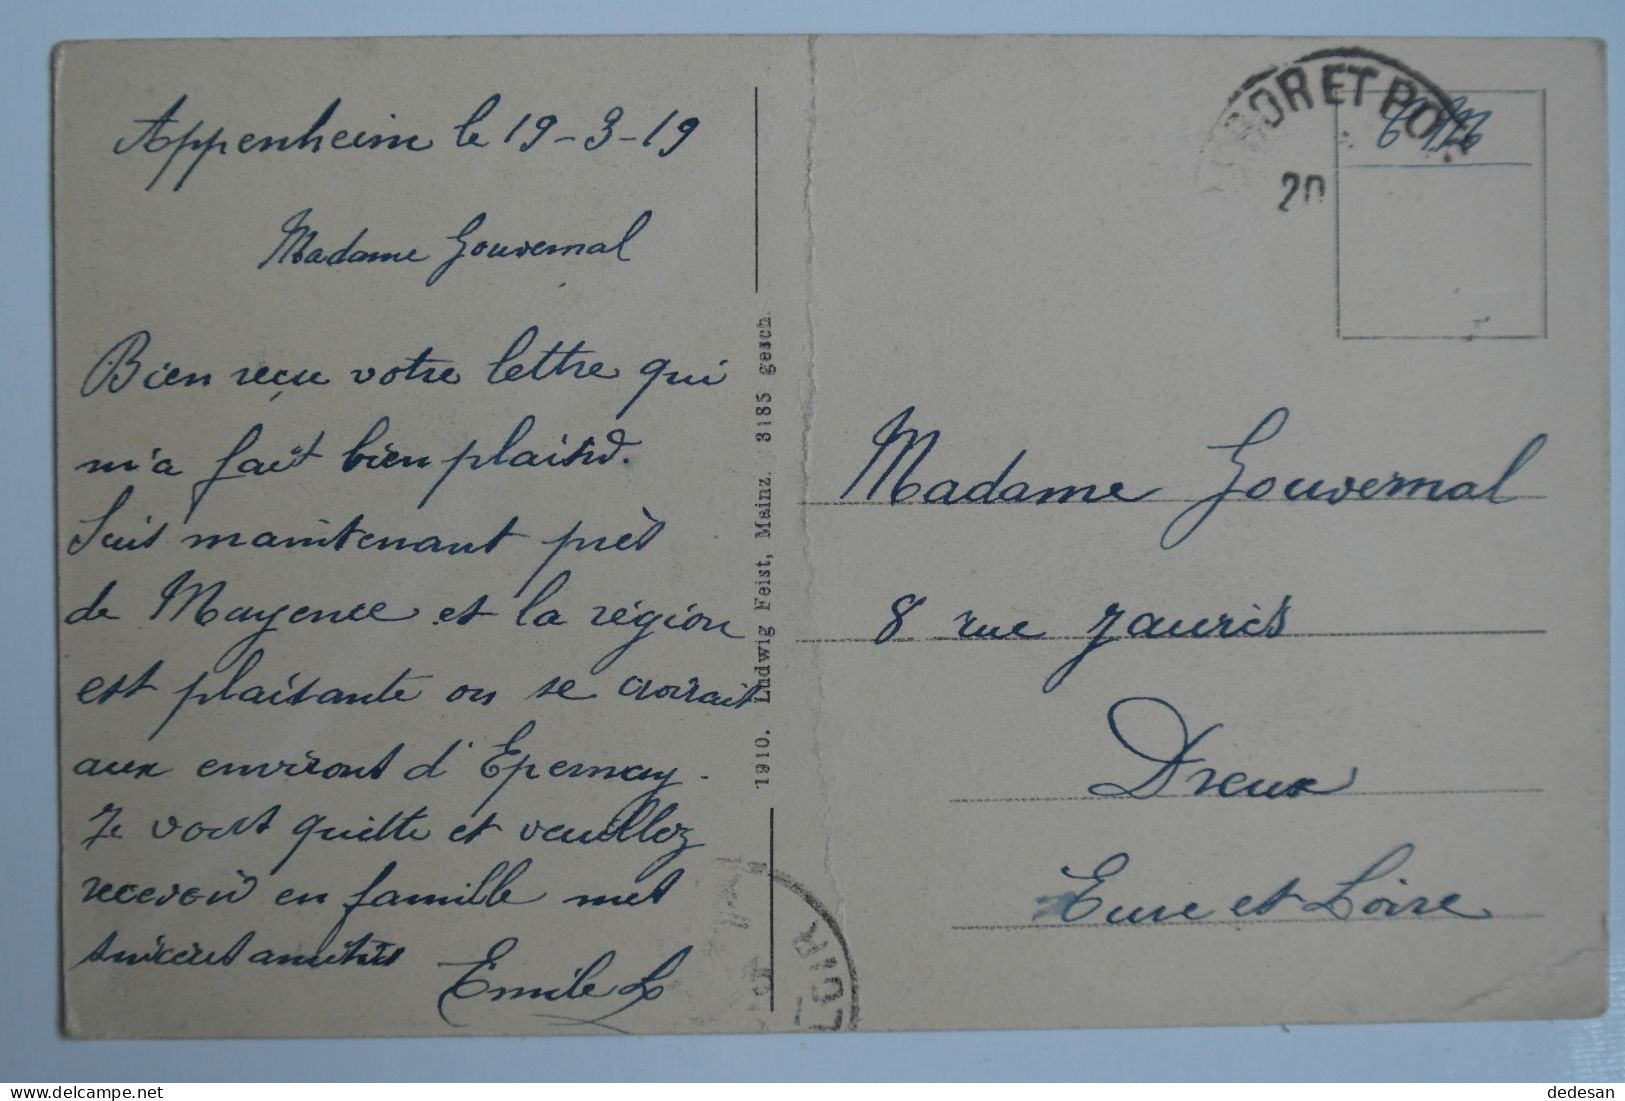 Appenheim le 19-3-19
Madame Gouvernal
Bien reçu votre lettre qui
m'a fait bien plaisir.
Suis maintenant près
de Mayence et la région
est plaisante on se croirait
aux environs d'Epernay.
Je vous quitte et veuillez
recevoir en famille mes
sincères amitiés
Emile L
1910. Ludwig Feist, Mainz. 3185 gesch.
OR ET PO
20
Madame Gouvernal
8 rue Jaurès
Dreux
Eure et Loire
LOIR
dedesan